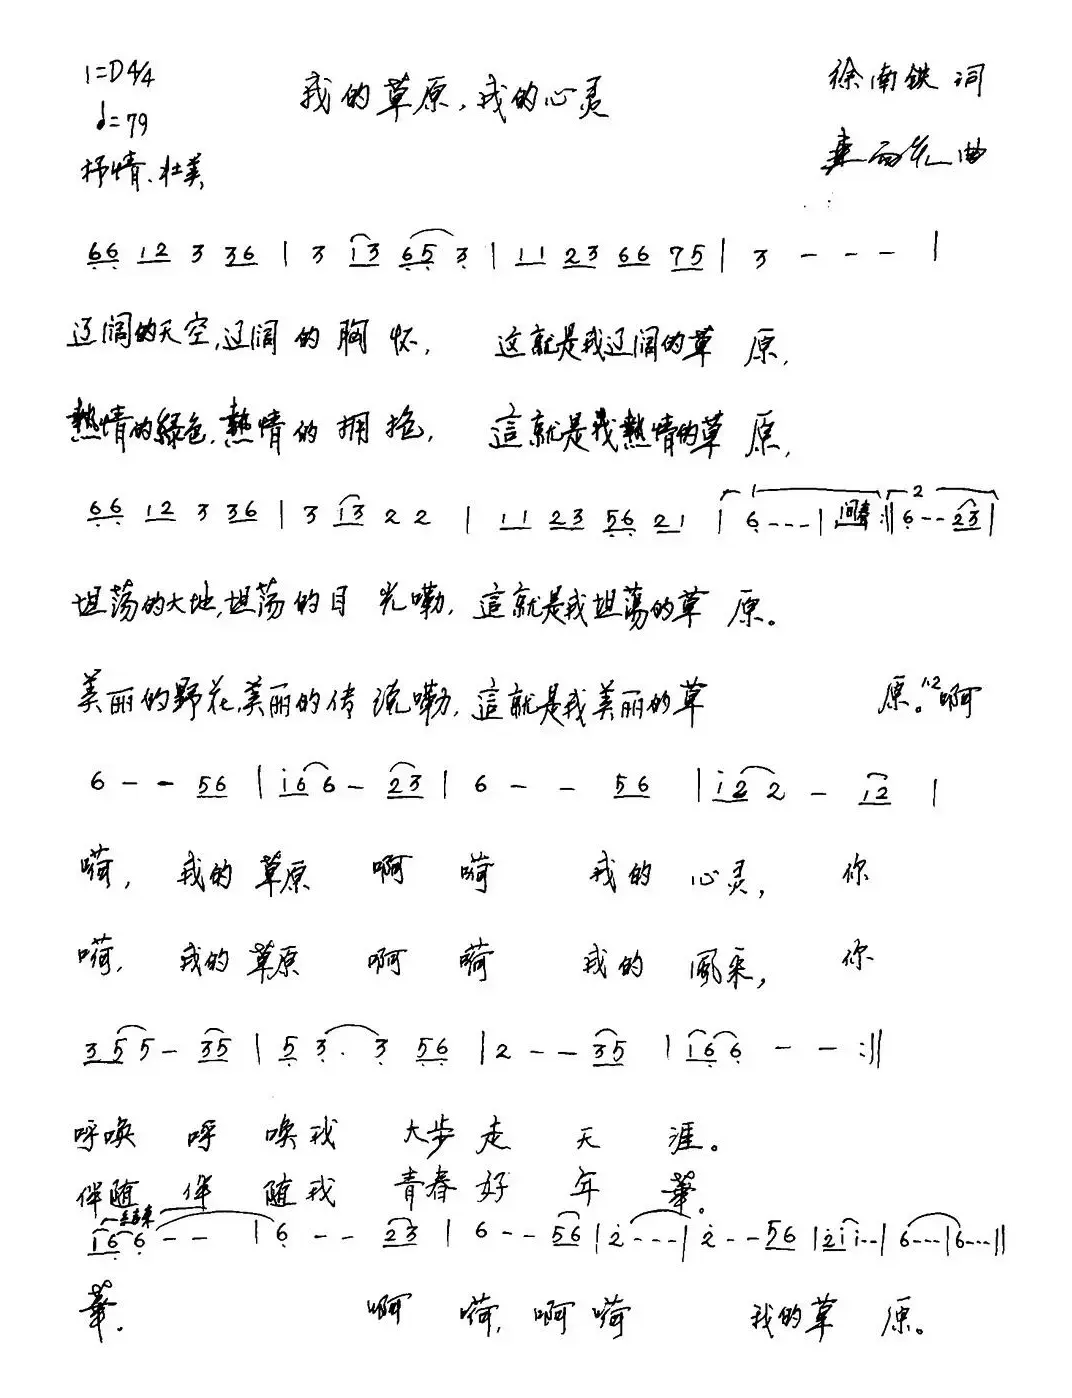 1=D 4/4 我的草原,我的心灵 徐南铁 词
♩=79 曲
抒情、壮美
66 12 3 36 | 3 13 65 3 | 11 23 66 75 | 3 - - - |
辽阔的天空,辽阔的胸怀, 这就是我辽阔的草原,
熱情的綠色,熱情的拥抱, 這就是我熱情的草原,
66 12 3 36 | 3 13 2 2 | 11 23 56 21 | 1 6 - - - | 间奏 :|| 2 6 - - 23 |
坦荡的大地,坦荡的目光嘞,這就是我坦蕩的草原。
美丽的野花,美丽的传统嘞,這就是我美丽的草 原。1.2啊
6 - - 56 | i6 6 - 23 | 6 - - 56 | i2 2 - 12 |
嗬, 我的草原 啊 嗬 我的心灵, 你
嗬, 我的草原 啊 嗬 我的風采, 你
35 5 - 35 | 5 3. 3 56 | 2 - - 35 | 16 6 - - :||
呼唤 呼唤我 大步走天涯。
伴随 伴随我 青春好年華。
结束
16 6 - - | 6 - - 23 | 6 - - 56 | 2 - - - | 2 - - 56 | 2i i - - | 6 - - - | 6 - - - ||
華. 啊 嗬, 啊 嗬 我的草原。